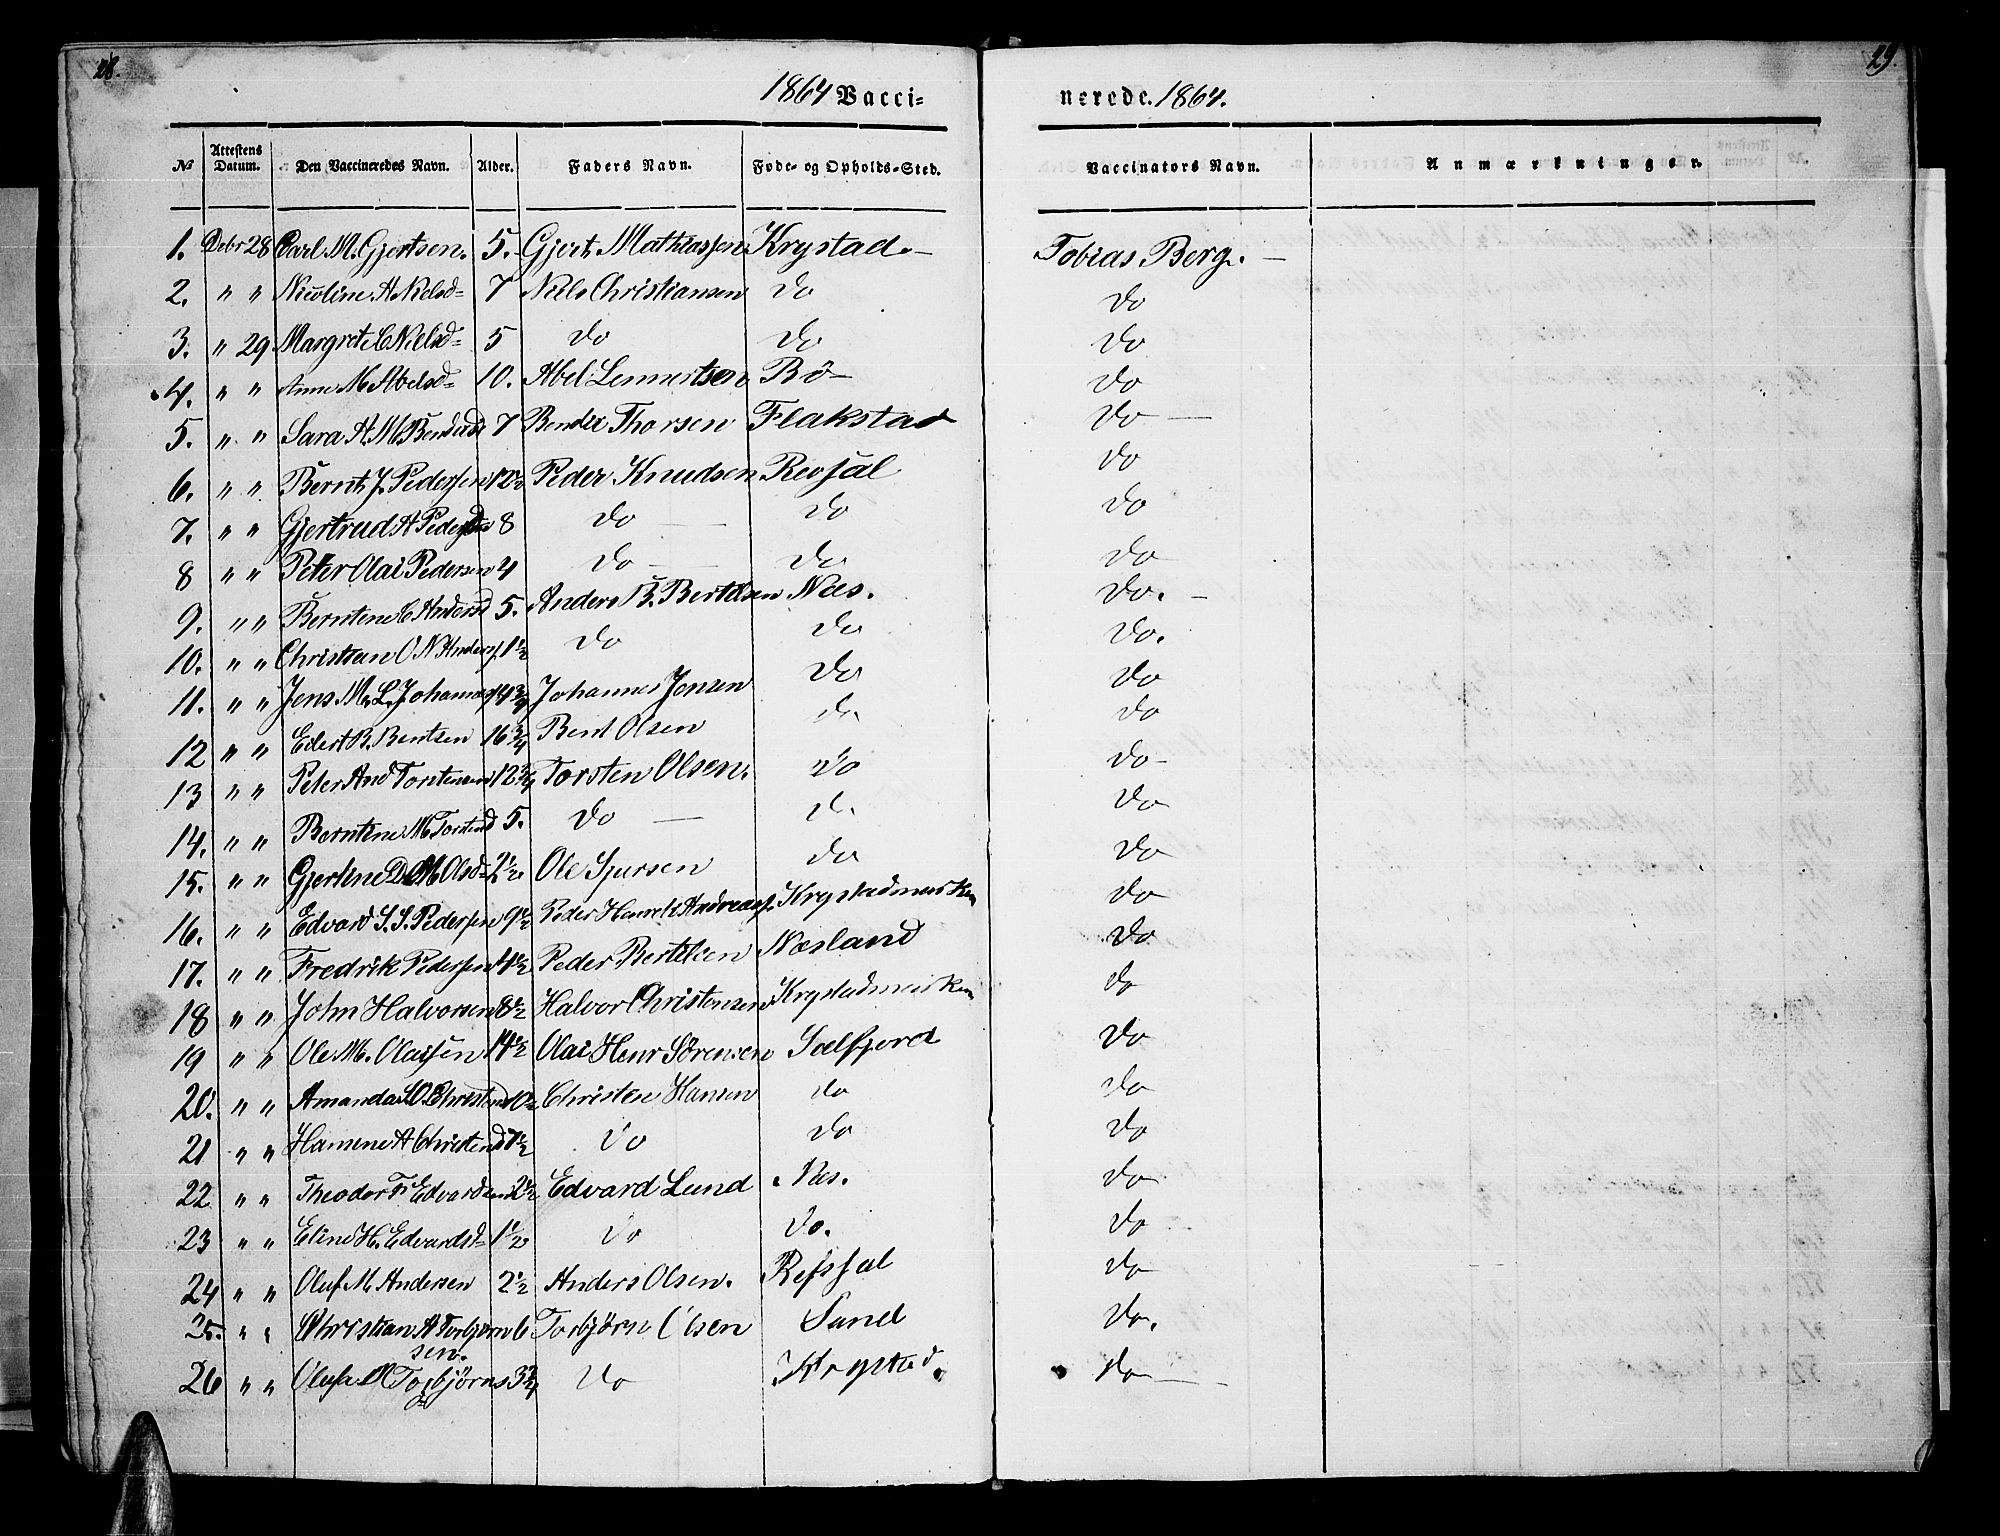 28.
29.
1864 Vacci- nerede. 1864.
№ Attestens Datum. Den Vaccineredes Navn. Alder. Faders Navn. Føde- og Opholds-Sted. Vaccinators Navn. Anmærkninger.
1. Debr 28 Carl M. Gjertsen. 5. Gjert Mathiassen Krystad. Tobias Berg.
2. " " Nicoline A Nielsd= 7 Niels Christiansen do do
3. " 29 Margret C Nielsd= 5 do do do
4. " " Anne M Abelsd= 10. Abel Lennertsen Bö do
5. " " Sara A. M. 7 Bendix Thorsen Flakstad do
6. " " Bernt J. Pedersen 12½ Peder Knudsen do
7. " " Gjertrud A 8 do do do
8 " " Peter Olai Pedersen 4 do do do
9. " " Berntine C Andersd 5. Anders B. Bertelsen Næs. do.
10. " " Christian O N Anders. 1½ do do do.
11. " " Jens M. L. 14¾ Johannes Jensen do do
12 " " Edert B. Bentsen 16¾ Bent Olsen do do
13 " " Peter And Torstensen 12¾ Torsten Olsen. do do
14. " " Berntine M. Torstend 5. do do do
15. " " Gjertine Olsd= 2½ Ole Sjursen do do
16. " " Edvard S. S. Pedersen 9½ Peder Henrik Andreass. Krystadmarken do
17. " " Fredrik Pedersen 4½ Peder Bertelsen Næsland do
18 " " John Halvorsen 8½ Halvor Christensen Krystadmarken do
19 " " Ole M. Olaisen 14½ Olai Henr Sörensen Selfjord do
20. " " Amanda Christend 10½ Christen Hansen do do
21 " " Hansine A Christend 7½ do do do
22 " " Theodor F Edvardsen 2½ Edvard Lund Næs. do
23 " " Eline H. Edvardsd= 1½ do do. do
24 " " Oluf M. Andersen 2½ Anders Olsen. Refssal do
25. " " Christian A Torbjørn 6 Torbjørn Olsen Sund do.
sen.
26 " " Olufa M Torbjørns 3¾ do Krystad. do